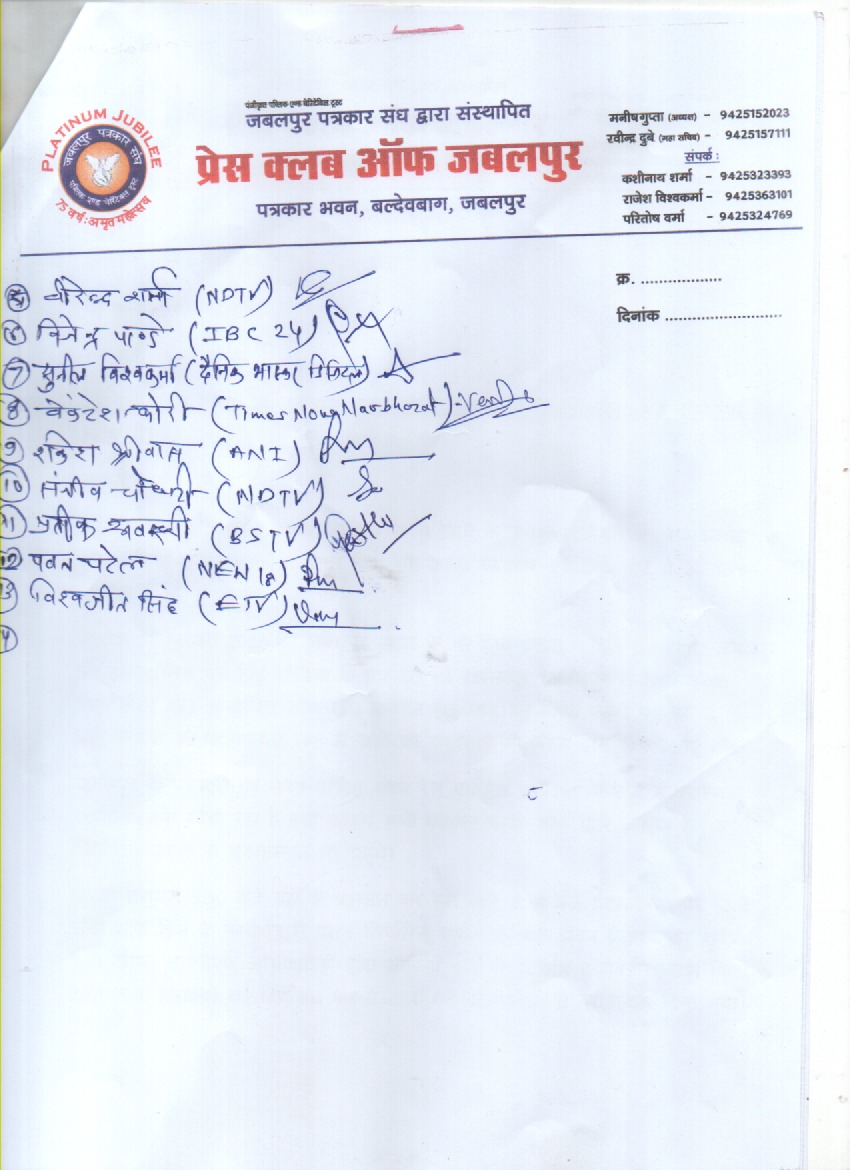 PLATINUM JUBILEE
जबलपुर पत्रकार संघ
पब्लिक एण्ड चेरिटेबिल ट्रस्ट
75 वर्ष: अमृत महोत्सव
पंजीकृत पब्लिक एण्ड चेरिटेबिल ट्रस्ट
जबलपुर पत्रकार संघ द्वारा संस्थापित
प्रेस क्लब ऑफ जबलपुर
पत्रकार भवन, बल्देवबाग, जबलपुर
मनीषगुप्ता (अध्यक्ष) - 9425152023
रवीन्द्र दुबे (महा सचिव) - 9425157111
संपर्क :
कशीनाथ शर्मा - 9425323393
राजेश विश्वकर्मा - 9425363101
परितोष वर्मा - 9425324769
क्र. ..................
दिनांक ..........................
वीरेन्द्र शर्मा (NDTV)
6 पाण्डे (IBC 24)
7 सुनील विश्वकर्मा (दैनिक भास्कर डिजिटल)
8 वेंकटेश कोरी (Times Now Navbharat)
9 श्रीवास (ANI)
10 संजीव चौधरी (NDTV)
11 प्रतीक अवस्थी (BSTV)
12 पवन पटेल (NEW 18)
13 विश्वजीत सिंह (ETV)